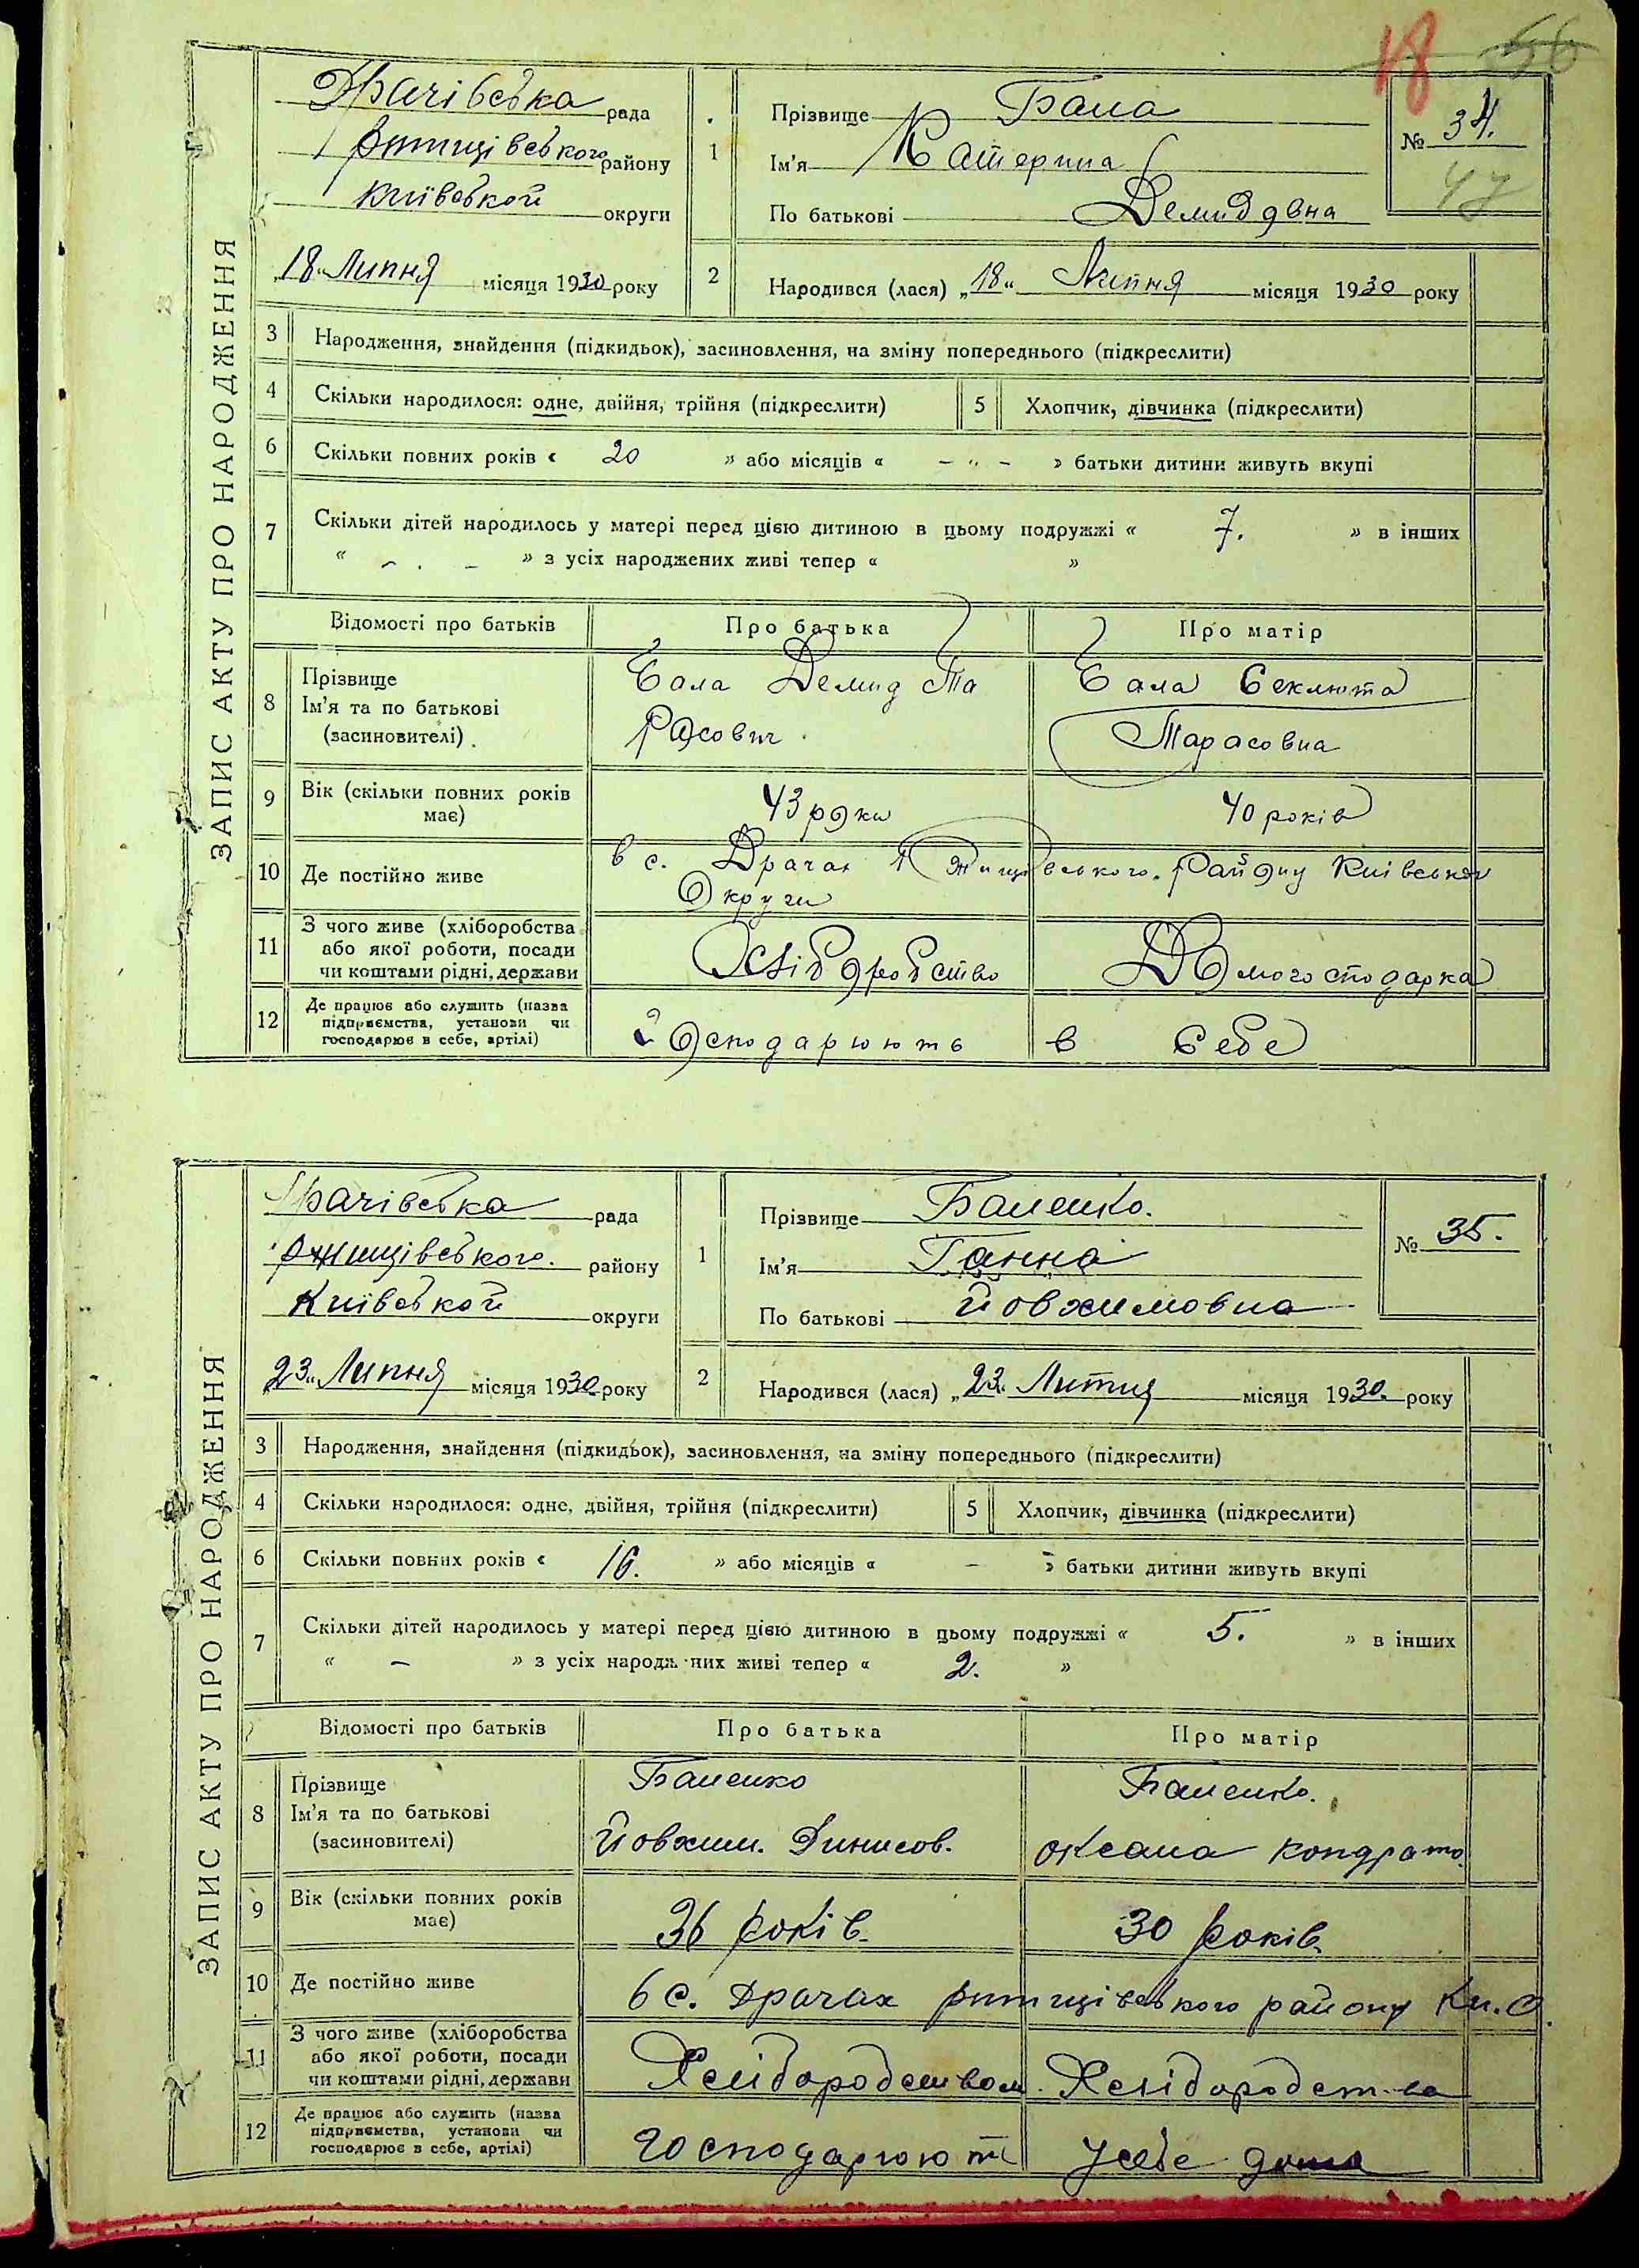 18 56
ЗАПИС АКТУ ПРО НАРОДЖЕННЯ
Драчівська рада
Ржищівського району
Київської округи
„18“ Липня місяця 1930 року
1 Прізвище Бала
Ім'я Катерина
По батькові Демидовна
№ 34.
47
2 Народився (лася) „18“ Липня місяця 1930 року
3 Народження, знайдення (підкидьок), засиновлення, на зміну попереднього (підкреслити)
4 Скільки народилося: одне, двійня, трійня (підкреслити) 5 Хлопчик, дівчинка (підкреслити)
6 Скільки повних років « 20 » або місяців « - „ - » батьки дитини живуть вкупі
7 Скільки дітей народилось у матері перед цією дитиною в цьому подружжі « 7. » в інших
« - . - » з усіх народжених живі тепер « »
Відомості про батьків Про батька Про матір
8 Прізвище Ім'я та по батькові (засиновителі)
Бала Демид Та
расович
Бала Секлюта
Тарасовна
9 Вік (скільки повних років має) 43 роки 40 років
10 Де постійно живе в с. Драчах Ржищівського. Району Київської
Округи
11 З чого живе (хліборобства або якої роботи, посади чи коштами рідні, держави Хліборобство Домогосподарка
12 Де працює або служить (назва підприємства, установи чи господарює в себе, артілі) Господарюють в себе
ЗАПИС АКТУ ПРО НАРОДЖЕННЯ
Драчівська рада
Ржищівського. району
Київської округи
„23“ Липня місяця 1930 року
1 Прізвище Баленко.
Ім'я Ганна
По батькові Йовхимовна
№ 35.
2 Народився (лася) „23“ Липня місяця 1930. року
3 Народження, знайдення (підкидьок), засиновлення, на зміну попереднього (підкреслити)
4 Скільки народилося: одне, двійня, трійня (підкреслити) 5 Хлопчик, дівчинка (підкреслити)
6 Скільки повних років « 16. » або місяців « - » батьки дитини живуть вкупі
7 Скільки дітей народилось у матері перед цією дитиною в цьому подружжі « 5. » в інших
« - » з усіх народжених живі тепер « 2. »
Відомості про батьків Про батька Про матір
8 Прізвище Ім'я та по батькові (засиновителі)
Баленко
Йовхим. Динисов.
Баленко.
Оксана Кондрато
9 Вік (скільки повних років має) 36 років. 30 років.
10 Де постійно живе в с. Драчах Ржищівського району Ки. О.
11 З чого живе (хліборобства або якої роботи, посади чи коштами рідні, держави Хліборобством. Хліборобства
12 Де працює або служить (назва підприємства, установи чи господарює в себе, артілі) господарюють у себе дома